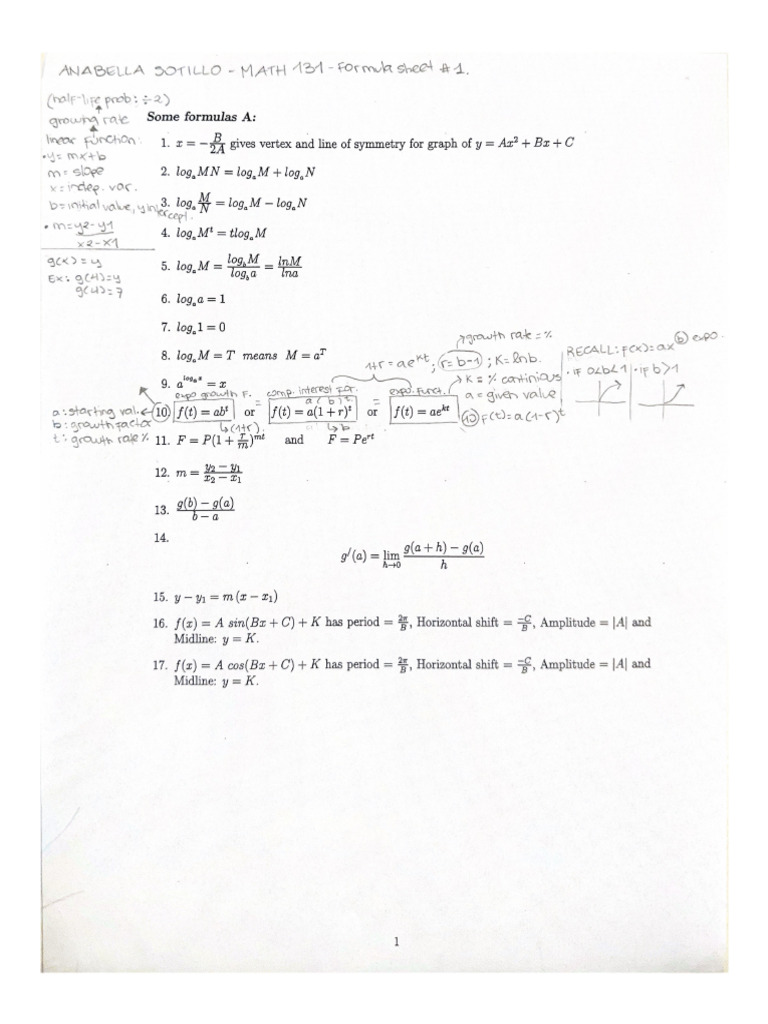 ANABELLA SOTILLO - MATH 131 - Formula sheet #1.
(half-life prob: ÷2)
growing rate
linear function:
• y = mx+b
m = slope
x = indep. var.
b = initial value, y intercept.
• m = y2-y1
x2-x1
g(x) = y
Ex: g(t)=y
g(4)=7
Some formulas A:
1. x = −B/2A gives vertex and line of symmetry for graph of y = Ax² + Bx + C
2. logₐMN = logₐM + logₐN
3. logₐ M/N = logₐM − logₐN
4. logₐMᵗ = tlogₐM
5. logₐM = log_b M / log_b a = lnM/lna
6. logₐa = 1
7. logₐ1 = 0
8. logₐM = T means M = a^T
9. a^(logₐx) = x
1+r = ae^kt; r = b-1; K = lnb.
growth rate = %
K = % continious
a = given value
RECALL: f(x) = ax^b expo.
• if 0<b<1 • if b>1
expo growth F. = comp. interest For. = expo. Funct.
a(b)^t
a: starting val.
b: growth factor
t: growth rate %
10. f(t) = ab^t or f(t) = a(1 + r)^t or f(t) = ae^kt
(1+r) b
10 F(t) = a(1-r)^t
11. F = P(1 + r/m)^mt and F = Pe^rt
12. m = (y₂ − y₁)/(x₂ − x₁)
13. (g(b) − g(a))/(b − a)
14.
g′(a) = lim h→0 (g(a + h) − g(a))/h
15. y − y₁ = m (x − x₁)
16. f(x) = A sin(Bx + C) + K has period = 2π/B, Horizontal shift = −C/B, Amplitude = |A| and
Midline: y = K.
17. f(x) = A cos(Bx + C) + K has period = 2π/B, Horizontal shift = −C/B, Amplitude = |A| and
Midline: y = K.
1